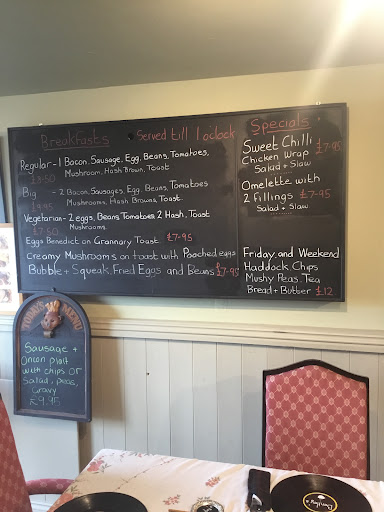 Breakfasts Served till 1 o'clock
Regular - 1 Bacon, Sausage, Egg, Beans, Tomatoes,
Mushroom, Hash Brown, Toast
£8.50
Big - 2 Bacon, Sausages, Egg, Beans, Tomatoes
Mushrooms, Hash Browns, Toast.
£9.95
Vegetarian - 2 eggs, Beans, Tomatoes, 2 Hash, Toast
£7.50 Mushrooms.
Eggs Benedict on Grannary Toast £7.95
Creamy Mushrooms on toast with Poached eggs
Bubble + Squeak, Fried Eggs and Beans £7.95
Specials
Sweet Chilli
Chicken Wrap £7.95
Salad + Slaw
Omelette with
2 fillings £7.95
Salad + Slaw
Friday and Weekend
Haddock Chips
Mushy Peas Tea
Bread + Butter £12
TODAY'S MENU
Sausage +
Onion plait
with chips or
Salad, peas,
Gravy
£9.95